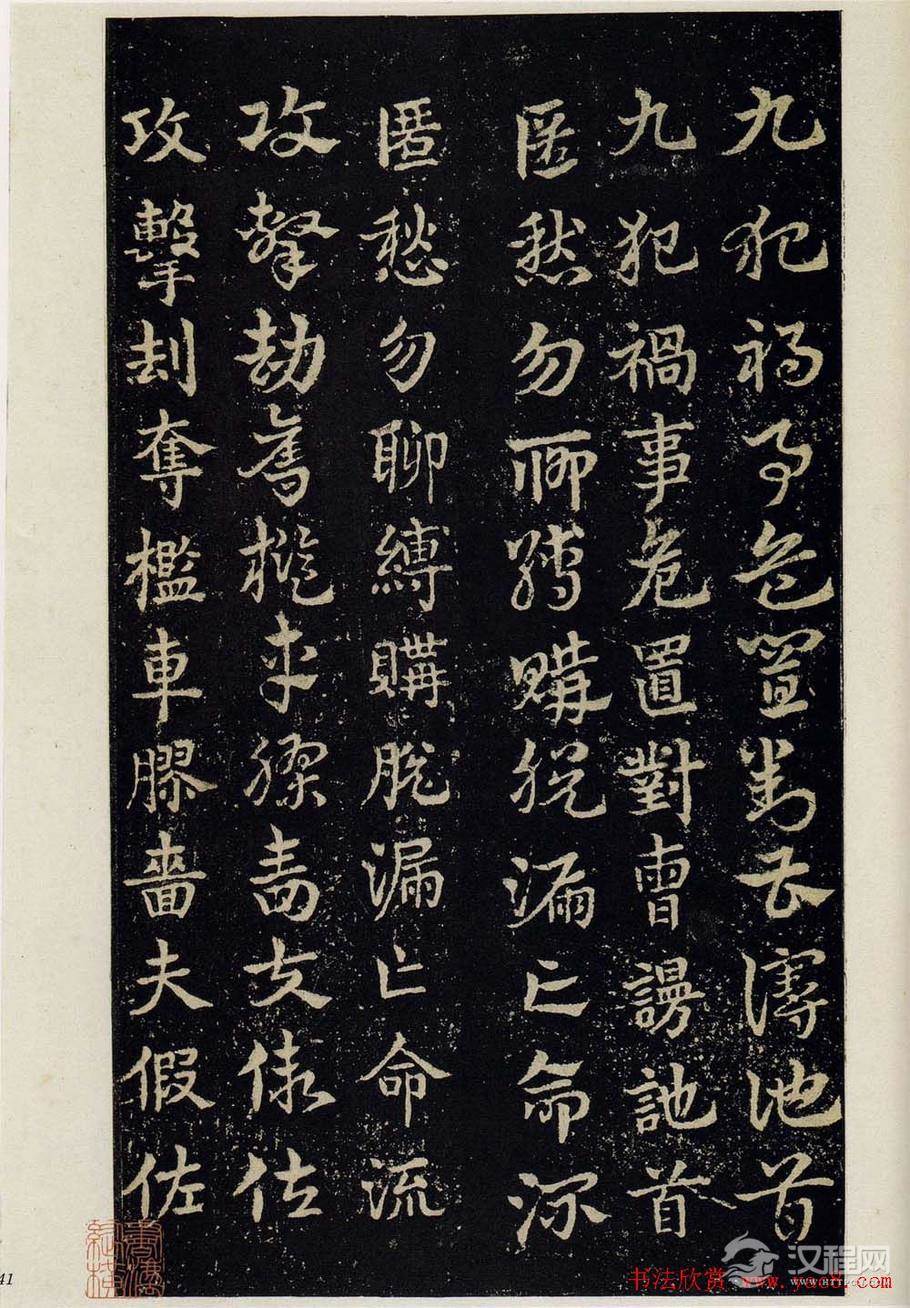 九犯禍事危置對曹謾訑首
九犯禍事危置對曹謾訑首
匿愁勿聊縛購脫漏亡命流
匿愁勿聊縛購脫漏亡命流
攻擊劫奪檻車膠嗇夫假佐
攻擊刦奪檻車膠嗇夫假佐
41
汉程网
书法欣赏 www.yac8.com